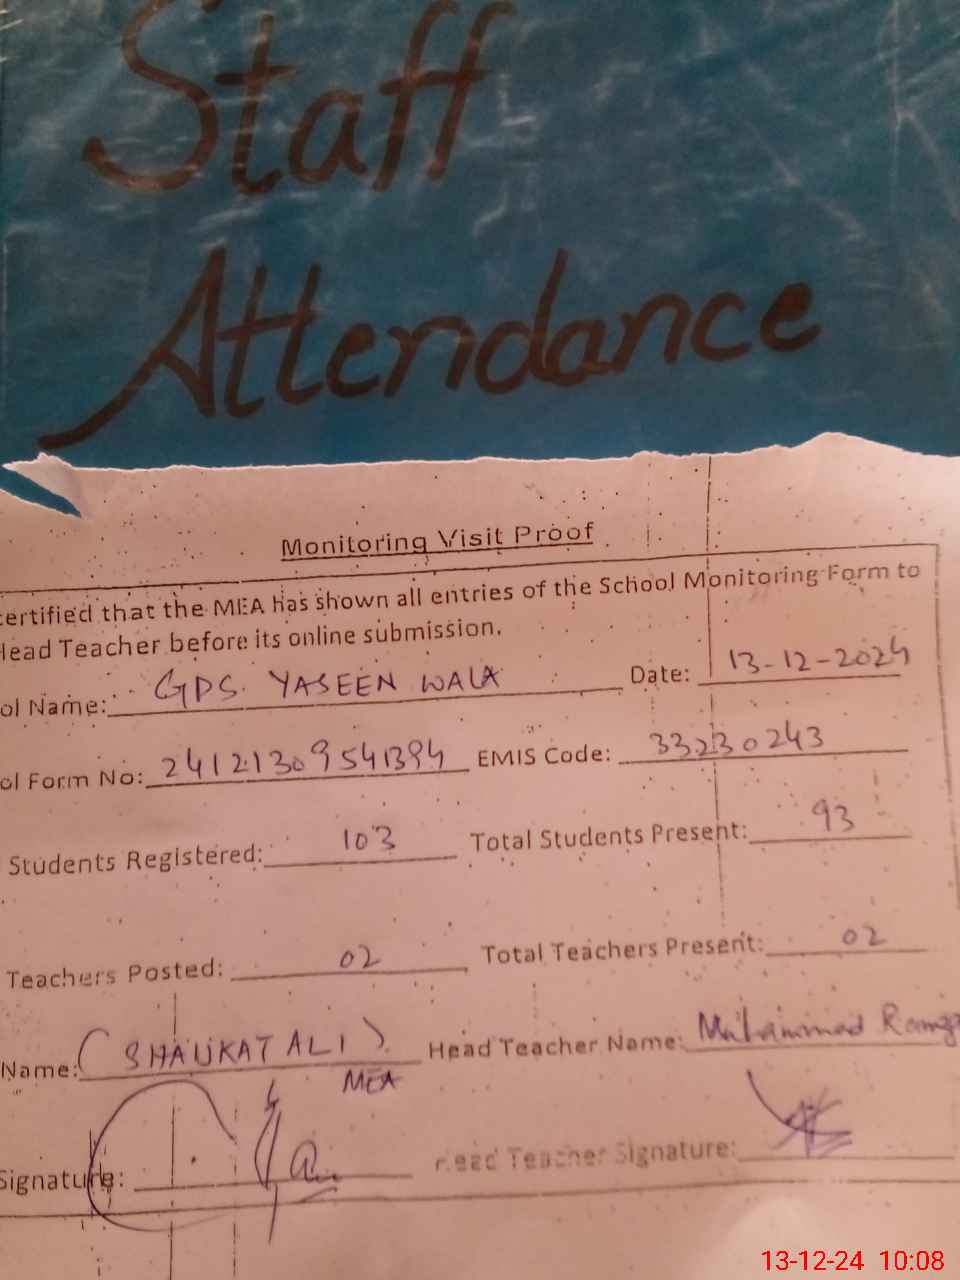 Staff
Attendance
Monitoring Visit Proof
certified that the MEA has shown all entries of the School Monitoring Form to
Head Teacher before its online submission.
ol Name: GPS. YASEEN WALA Date: 13-12-2024
ol Form No: 24121309541394 EMIS Code: 33230243
Students Registered: 103 Total Students Present: 93
Teachers Posted: 02 Total Teachers Present: 02
Name: (SHAUKAT ALI) Head Teacher Name: Muhammad
MEA
Signature: Head Teacher Signature:
13-12-24 10:08